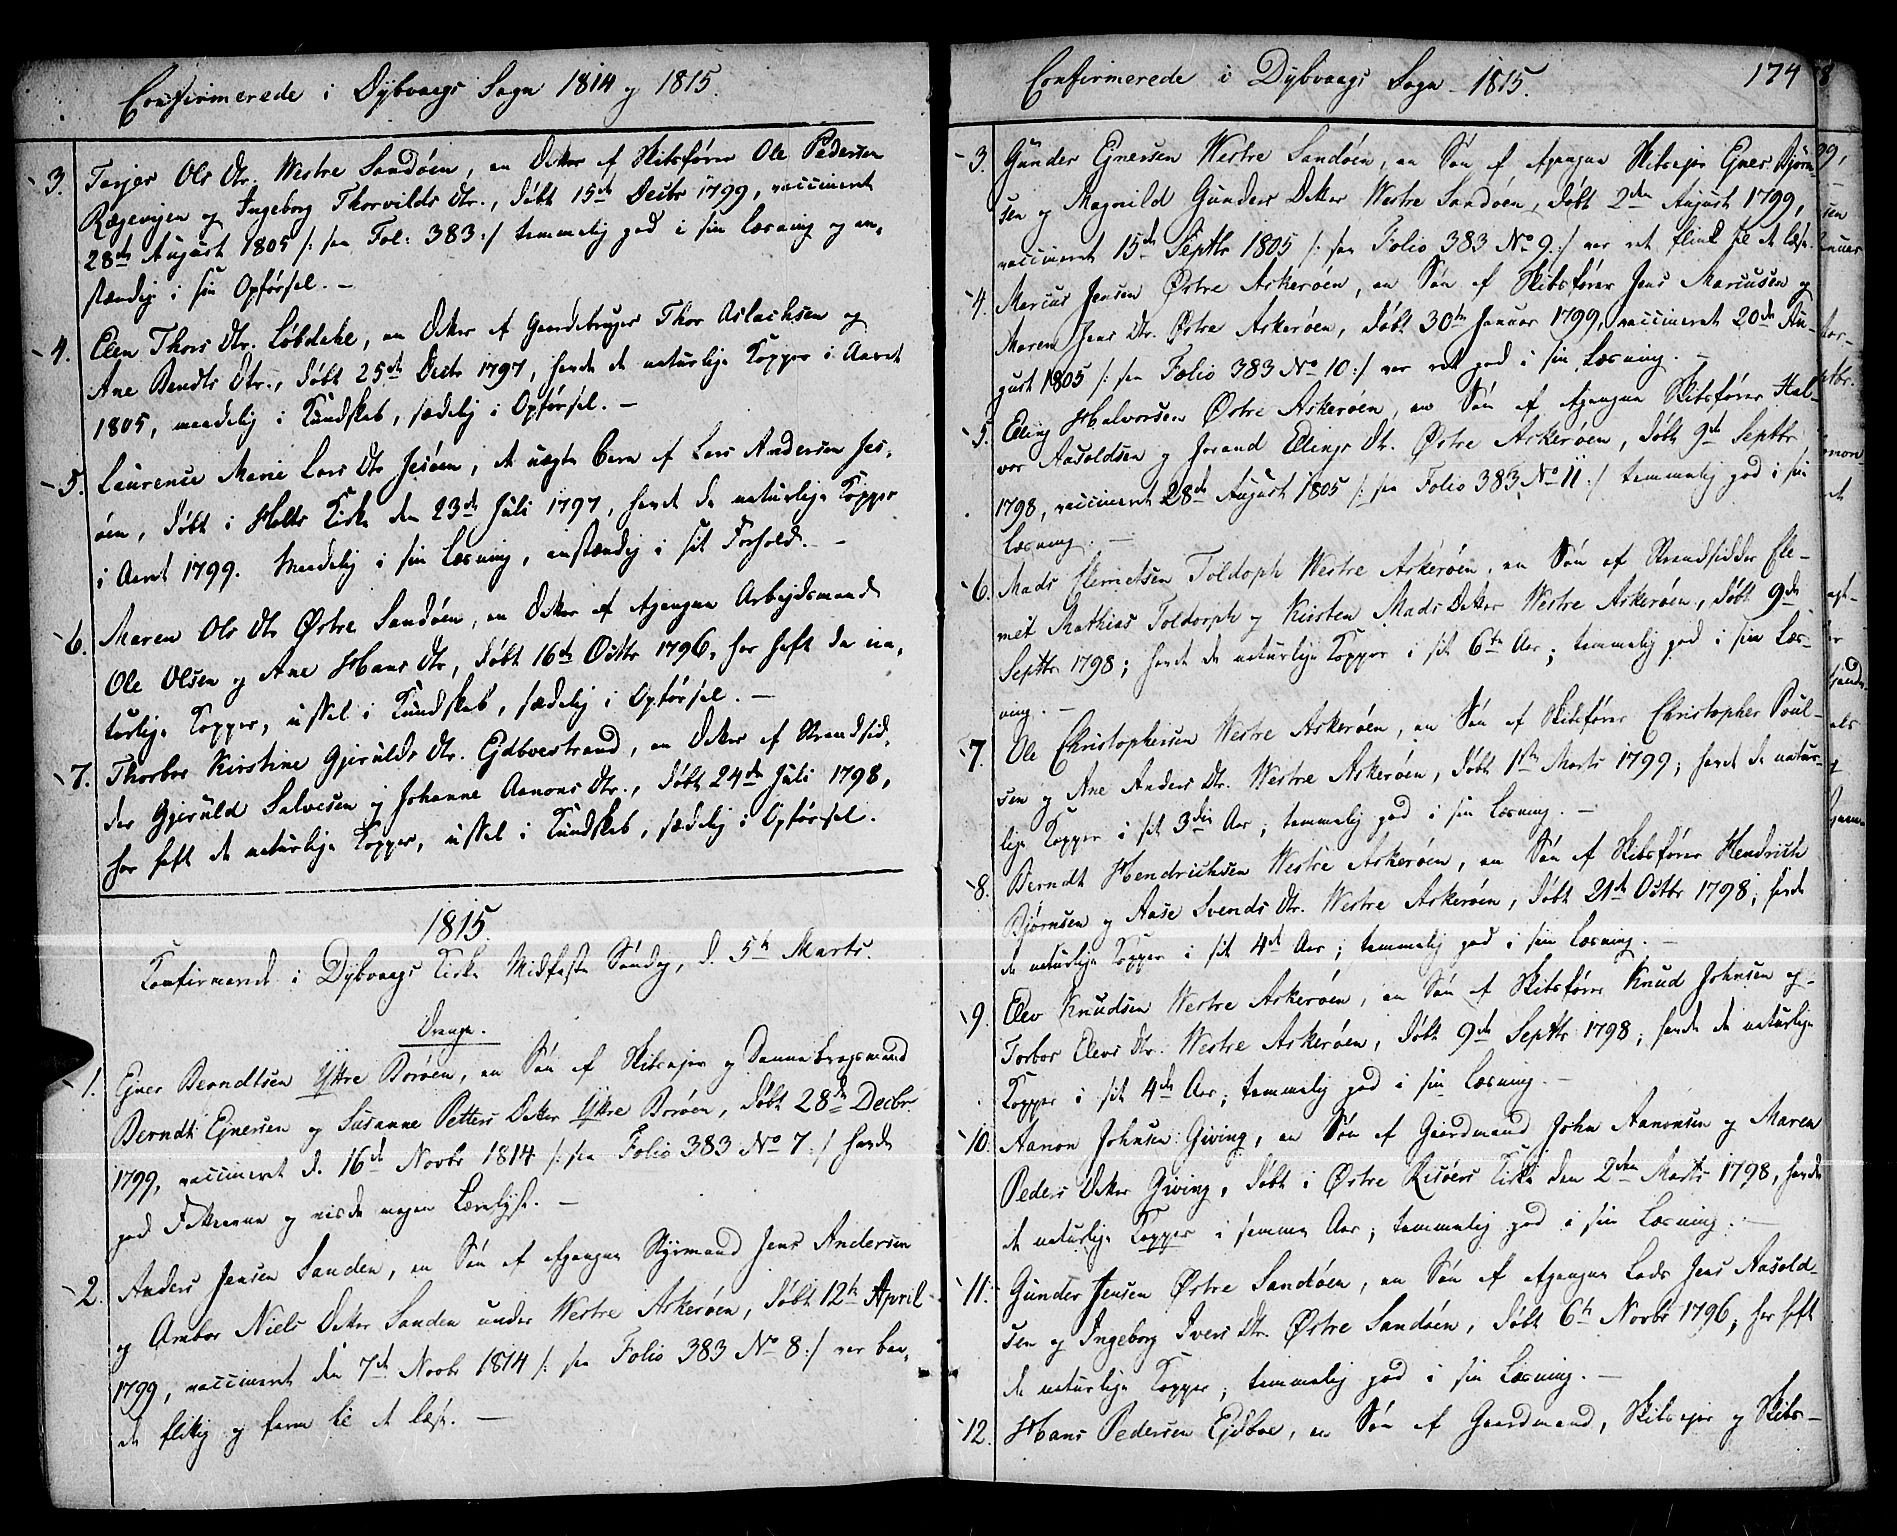 Confirmerede i Dybvaags Sogn 1814 og 1815.
3. Tarjer Ols Dtr. Westre Sandöen, en Dotter af Skibsfører Ole Pedersen
Rægevigen og Ingeborg Thorvilds Dtr., døbt 15de Decbr 1799, vaccineret
28de August 1805 /: see Fol: 383 :/ temmelig god i sin Læsning og an-
stændig i sin Opførsel. —
4. Elen Thors Dtr. Løbdahl, en Dotter af Gaardebruger Thor Aslachsen og
Ane Bendts Dtr., døbt 25de Decbr 1797, havde de naturlige Kopper i Aaret
1805, maadelig i Kundskab, sædelig i Opførsel. —
5. Laurence Marie Lars Dtr Jesöen, et uægte Barn af Lars Andersen Jes-
öen, døbt i Holts Kirke den 23de Juli 1797, havde de naturlige Kopper
i Aaret 1799. Maadelig i sin Læsning, anstændig i sit Forhold. —
6. Maren Ols Dtr Østre Sandöen, en Dotter af afgangne Arbejdsmand
Ole Olsen og Ane Hans Dtr, døbt 16de Octbr 1796, har haft de na-
turlige Kopper, ussel i Kundskab, sædelig i Opførsel. —
7. Thorbor Kirstine Gjerulds Dtr. Ejdbostrand, en Dotter af Strandsid-
der Gjeruld Salvesen og Johanne Aanons Dtr., døbt 24de Juli 1798,
har haft de naturlige Kopper, ussel i Kundskab, sædelig i Opførsel.
1815
Konfirmeret i Dybvaags Kirke Midfaste Søndag, d. 5te Marts.
Drenge.
1. Ejner Berndtsen Yttre Boröen, en Søn af Skibsejer og Dannebrogsmand
Berndt Ejnersen og Susanne Petters Dotter Yttre Boröen, døbt 28de Decbr
1799, vaccineret d. 16de Novbr 1814 /: see Folio 383 No 7 :/ havde
god og viste megen Lærelyst. —
2. Anders Jensen Sanden, en Søn af afgangne Styrmand Jens Andersen
og Ambor Niels Dotter Sanden under Westre Askeröen, døbt 12te April
1799, vaccineret den 7de Novbr 1814 /: see Folio 383 No 8 :/ var baa-
de flittig og færm til at læse. —
Confirmerede i Dybvaags Sogn 1815.
174
3. Gunder Ejnersen Westre Sandöen, en Søn af afgangne Skibsejer Ejner Bjørn-
sen og Magnild Gunders Dotter Westre Sandöen, døbt 2den August 1799,
vaccineret 15de Septbr 1805 /: see Folio 383 No 9 :/ var ret flink til at læse.
4. Marcus Jensen Østre Askeröen, en Søn af Skibsfører Jens Marcusen og
Maren Jens Dtr. Østre Askeröen, døbt 30te Januar 1799, vaccineret 20de Au-
gust 1805 /: see Folio 383 No 10 :/ var ret god i sin Læsning. —
5. Elling Halvorsen Østre Askeröen, en Søn af afgangne Skibsfører Hal-
vor Aasoldsen og Jorand Ellings Dtr. Østre Askeröen, døbt 9de Septbr
1798, vaccineret 28de August 1805 /: see Folio 383 No 11 :/ temmelig god i sin
Læsning. —
6. Mads Elemetsen Toldoph Westre Askeröen, en Søn af Strandsidder Ele-
met Mathias Toldorph og Kirsten Mads Dotter Westre Askeröen, døbt 9de
Septbr 1798; havde de naturlige Kopper i sit 6te Aar; temmelig god i sin Læs-
ning. —
7. Ole Christophersen Westre Askeröen, en Søn af Skibsfører Christopher Poul-
sen og Ane Anders Dtr. Westre Askeröen, døbt 1ste Marts 1799; havde de natur-
lige Kopper i sit 3die Aar; temmelig god i sin Læsning. —
8. Berndt Hendrichsen Westre Askeröen, en Søn af Skibsfører Hendrich
Bjørnsen og Aase Svends Dtr. Westre Askeröen, døbt 21de Octbr 1798; havde
de naturlige Kopper i sit 4de Aar; temmelig god i sin Læsning. —
9. Elev Knudsen Westre Askeröen, en Søn af Skibsfører Knud Johnsen og
Torbor Elevs Dtr. Westre Askeröen, døbt 9de Septbr 1798; havde de naturlige
Kopper i sit 4de Aar; temmelig god i sin Læsning. —
10. Aanon Johnsen Giving, en Søn af Gaardmand John Aanonsen og Maren
Peders Dotter Giving, døbt i Østre Risöers Kirke den 2den Marts 1798, havde
de naturlige Kopper i samme Aar; temmelig god i sin Læsning. —
11. Gunder Jensen Østre Sandöen, en Søn af afgangne Lods Jens Aasold-
sen og Ingeborg Ivers Dtr. Østre Sandöen, døbt 6te Novbr 1796; har haft
de naturlige Kopper; temmelig god i sin Læsning. —
12. Hans Pedersen Ejdboe, en Søn af Gaardmand, Skibsejer og Skibs-